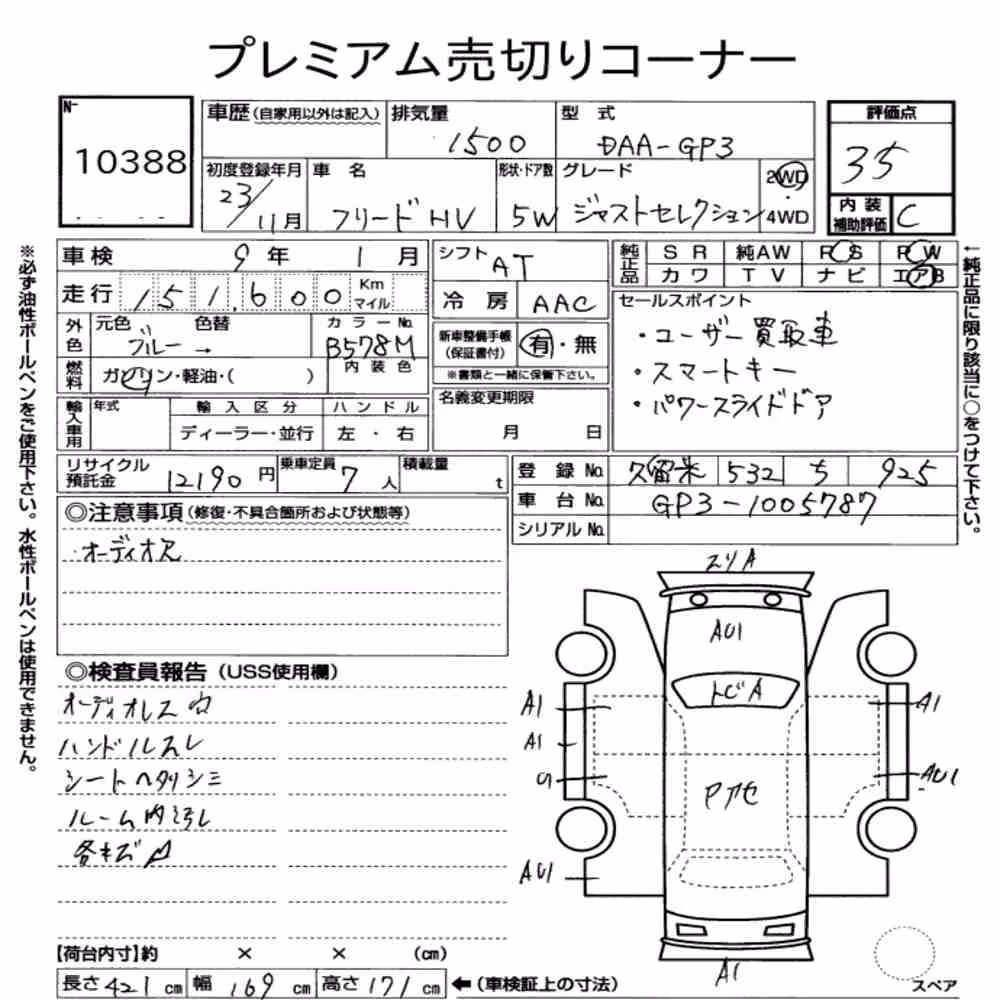 プレミアム売切りコーナー
No.
10388
車歴(自家用以外は記入)
排気量
1500
型式
DAA-GP3
初度登録年月
23/11月
車名
フリードHV
形状・ドア数
5W
グレード
ジャストセレクション
2WD
4WD
評価点
35
内装補助評価
C
車検 9年 1月
走行 151,600 Km マイル
外色 元色 ブルー → 色替
カラーNo.
B578M
燃料 ガソリン・軽油・( )
内装色
輸入車用 年式 輸入区分 ハンドル
ディーラー・並行 左・右
シフト AT
冷房 AAC
新車整備手帳(保証書付) 有・無
※書類と一緒に保管下さい。
名義変更期限
月 日
純正品 SR 純AW PS PW
カワ TV ナビ エアB
セールスポイント
・ユーザー買取車
・スマートキー
・パワースライドドア
←純正品に限り該当に○をつけて下さい。
※必ず油性ボールペンをご使用下さい。水性ボールペンは使用できません。
リサイクル預託金 12190円
乗車定員 7人
積載量 t
登録No. 久留米 532 ち 925
車台No. GP3-1005787
シリアルNo.
◎注意事項(修復・不具合箇所および状態等)
オーディオレス
◎検査員報告(USS使用欄)
オーディオレス 穴
ハンドルスレ
シートヘタリシミ
ルーム内汚レ
各キズ凹
スリA
AU1
トビA
A1
A1
A1
AU1
Pアセ
AU1
A1
スペア
【荷台内寸】約 × × (cm)
長さ421cm 幅169cm 高さ171cm ←(車検証上の寸法)